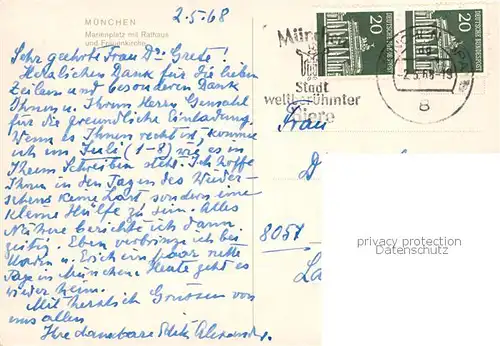 MÜNCHEN
Marienplatz mit Rathaus
und Frauenkirche
2.5.68
Sehr geehrte Frau Dr. Grete!
Herzlichen Dank für die lieben
Zeilen und besonderen Dank
Ihnen u. Ihrem Herrn Gemahl
für die freundliche Einladung.
Wenn es Ihnen recht ist, komme
ich im Juli (1-8) wie es in
Ihrem Schreiben steht. Ich hoffe
Ihnen in den Tagen des Wieder-
sehens keine Last sondern eine
kleine Hilfe zu sein. Alles
Nähere berichte ich dann
Eben verbringe ich bei
u. Erich ein paar nette
Tage in München. Heute geht es
wieder heim.
Mit herzlich Grüssen von
uns allen
Ihre dankbare
20
20
MÜNCHEN
-2.5.68-19
8
Mün
Stadt
weltberühmter
Biere
Frau
D
805
La
privacy protection
Datenschutz